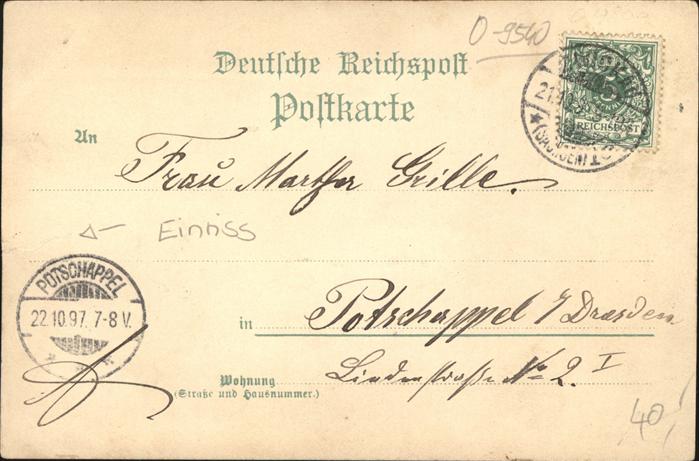 O-9540
Deutsche Reichspost
Postkarte
An
Frau Martha Grille.
REICHSPOST
Einriss
POTSCHAPPEL
22.10.97. 7-8 V.
in Potschappel b/ Dresden
Lindenstraße No 2. I
Wohnung
(Straße und Hausnummer.)
40,-